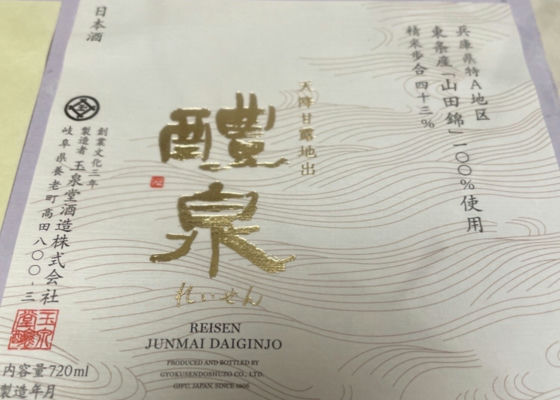 日本酒
兵庫県特A地区
東条産「山田錦」一〇〇%使用
精米歩合 四十三%
天降甘露地出
醴泉
れいせん
REISEN
JUNMAI DAIGINJO
PRODUCED AND BOTTLED BY
GYOKUSENDOSHUZO CO., LTD.
GIFU, JAPAN. SINCE 1806
創業文化三年
製造者 玉泉堂酒造株式会社
岐阜県養老町高田八〇〇-三
内容量720ml
製造年月